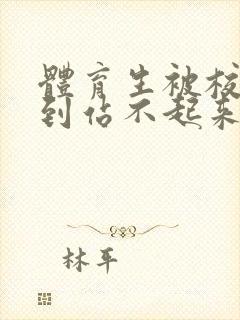 體育生被校
到佔不起來
林平